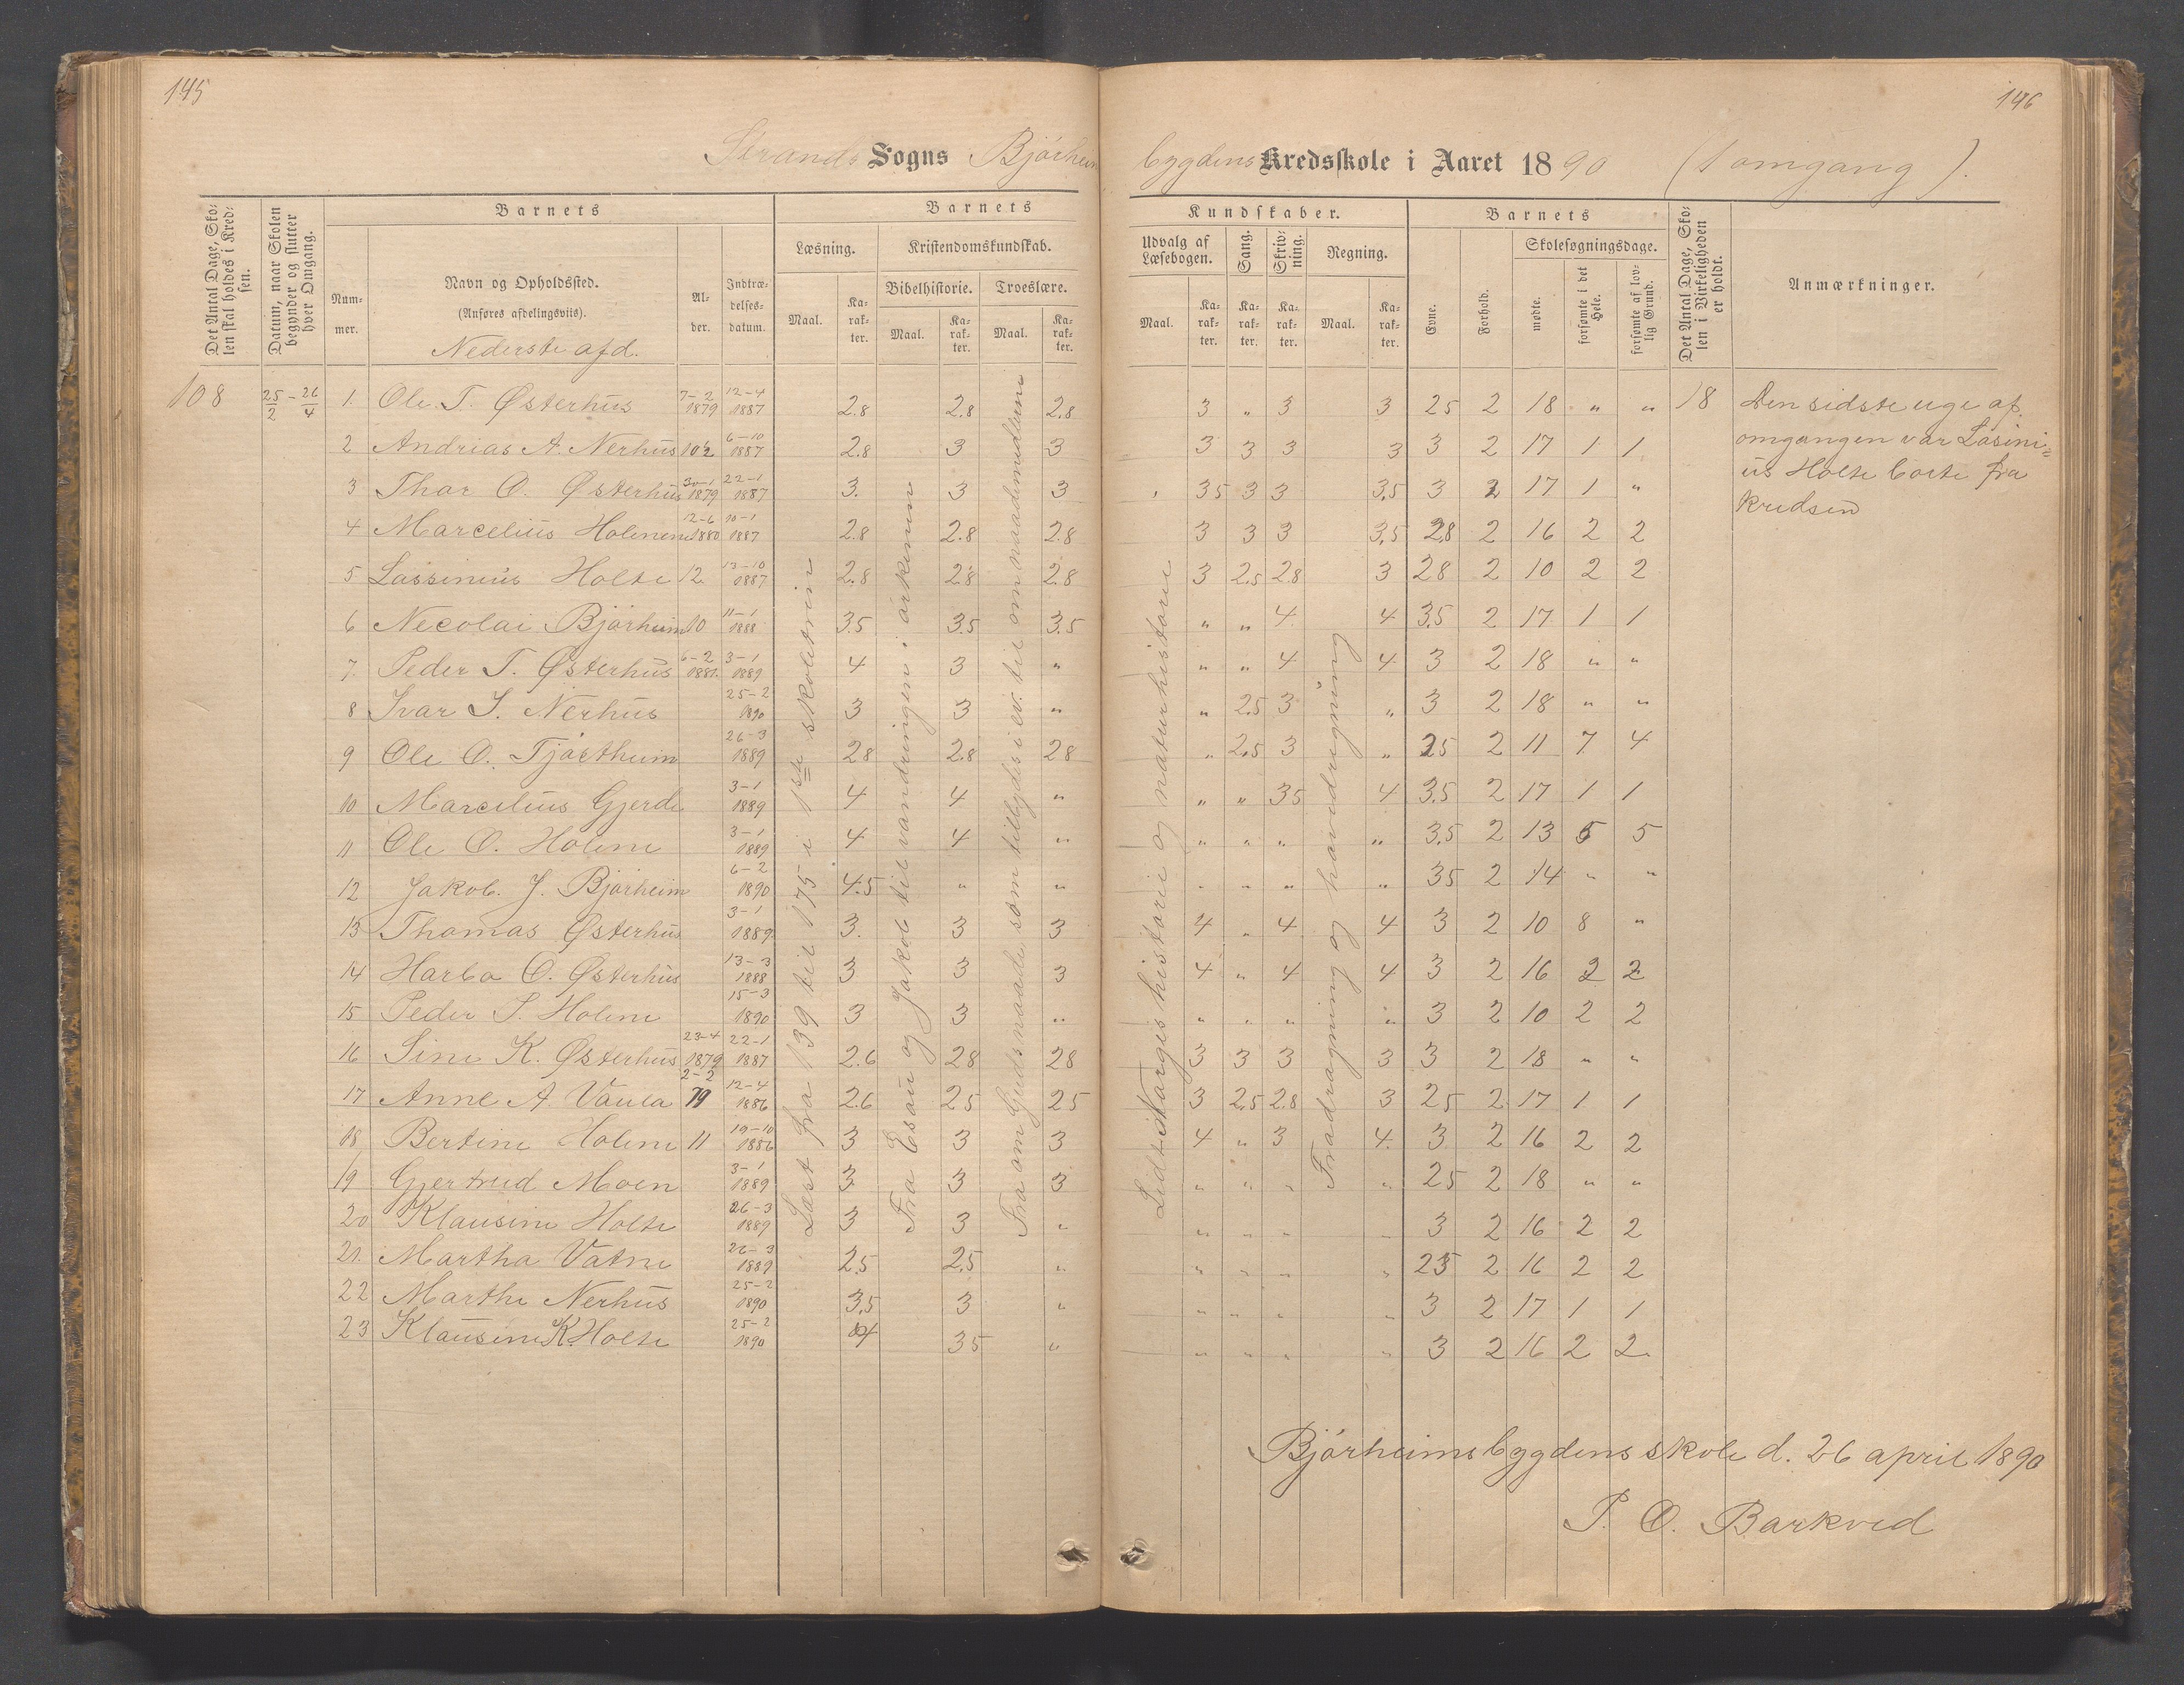 145
146
Strands Sogns Bjørheims bygdens Kredsskole i Aaret 1890 (1 omgang).
Det Antal Dage, Skolen skal holdes i Kredsen.
Datum, naar Skolen begynder og slutter hver Omgang.
Barnets
Nummer.
Navn og Opholdssted.
(Anføres afdelingsviis).
Nederste afd.
Alder.
Indtrædelsesdatum.
Barnets Kundskaber.
Læsning.
Maal. Karakter.
Kristendomskundskab.
Bibelhistorie.
Maal. Karakter.
Troeslære.
Maal. Karakter.
Udvalg af Læsebogen.
Maal. Karakter.
Sang.
Karakter.
Skrivning.
Karakter.
Regning.
Maal. Karakter.
Barnets
Evne.
Forhold.
Skolesøgningsdage.
mødte.
forsømte i det Hele.
forsømte af lovlig Grund.
Det Antal Dage, Skolen i Virkeligheden er holdt.
Anmærkninger.
108 25/2 - 26/4 1. Ole T. Østerhus 7-2 1879 12-4 1887 2.8 2.8 2.8 3 " 3 3 25 2 18 " " 18
2 Andrias A. Nerhus 10½ 6-10 1887 2.8 3 3 3 3 3 3 3 2 17 1 1
3 Thor O. Østerhus 30-1 1879 22-1 1887 3. 3 3 35 3 3 3,5 3 2 17 1 "
4 Marcelius Holmen 12-6 1880 10-1 1887 2.8 2.8 2.8 3 3 3 3,5 2,8 2 16 2 2
5 Lassinius Holte 12. 13-10 1887 2.8 2.8 2.8 3 2.5 2.8 3 28 2 10 2 2
6 Necolai Bjørheim 10 11-1 1888 3.5 3.5 3.5 " " 4 4 3.5 2 17 1 1
7. Peder T. Østerhus 6-2 1881. 3-1 1889 4 3 " " " 4 4 3 2 18 " "
8 Ivar I. Nerhus 25-2 1890 3 3 " " 2.5 3 " 3 2 18 " "
9 Ole O. Tjøstheim 26-3 1889 2.8 2.8 28 " 2.5 3 " 25 2 11 7 4
10 Marcelius Gjerde 3-1 1889 4 4 " " " 35 4 3.5 2 17 1 1
11 Ole O. Holene 3-1 1889 4 4 " " " " " 3.5 2 13 5 5
12 Jakob. J. Bjørheim 6-2 1890 4.5 " " " " " " 35 2 14 " "
13 Thomas Østerhus 3-1 1889. 3. 3 3 4 " 4 4 3 2 10 8 "
14 Harbo O. Østerhus 13-3 1888 3 3 3 4 " 4 4 3 2 16 2 2
15 Peder S. Holene 15-3 1890 3 3 " " " " " 3 2 10 2 2
16 Sine K. Østerhus 23-4 1879 22-1 1887 2.6 28 28 3 3 3 3 3 2 18 " "
17 Anne A. Vaula 2-2 79 12-4 1886 2.6 25 25 3 2.5 2.8 3 25 2 17 1 1
18 Bertine Holene 11 19-10 1886 3 3 3 4 " 3 4. 3 2 16 2 2
19 Gjertrud Moen 3-1 1889 3 3 3 " " " " 25 2 18 " "
20 Klausine Holte 26-3 1889 3 3 " " " " " 3 2 16 2 2
21. Martha Vatne 26-3 1889 2.5 2.5 " " " " " 25 2 16 2 2
22 Marthe Nerhus 25-2 1890 3.5 3 " " " " " 3 2 17 1 1
23 Klausine K. Holte 25-2 1890 4 35 " " " " " 3 2 16 2 2.
Læst fra 139 til 175 i 1ste skoletrin
Fra Esau og Jakob til vandringen i ørkenen
Fra om Guds naade, som tilbydes i ev. til om naademidlerne
Lidt Norges historie og naturhistorie
Fradragning og hovedregning
Den sidste uge af
omgangen var Lasini-
us Holte borte fra
kredsen
Bjørheimsbygdens skole d. 26 april 1890
P. O. Barkved